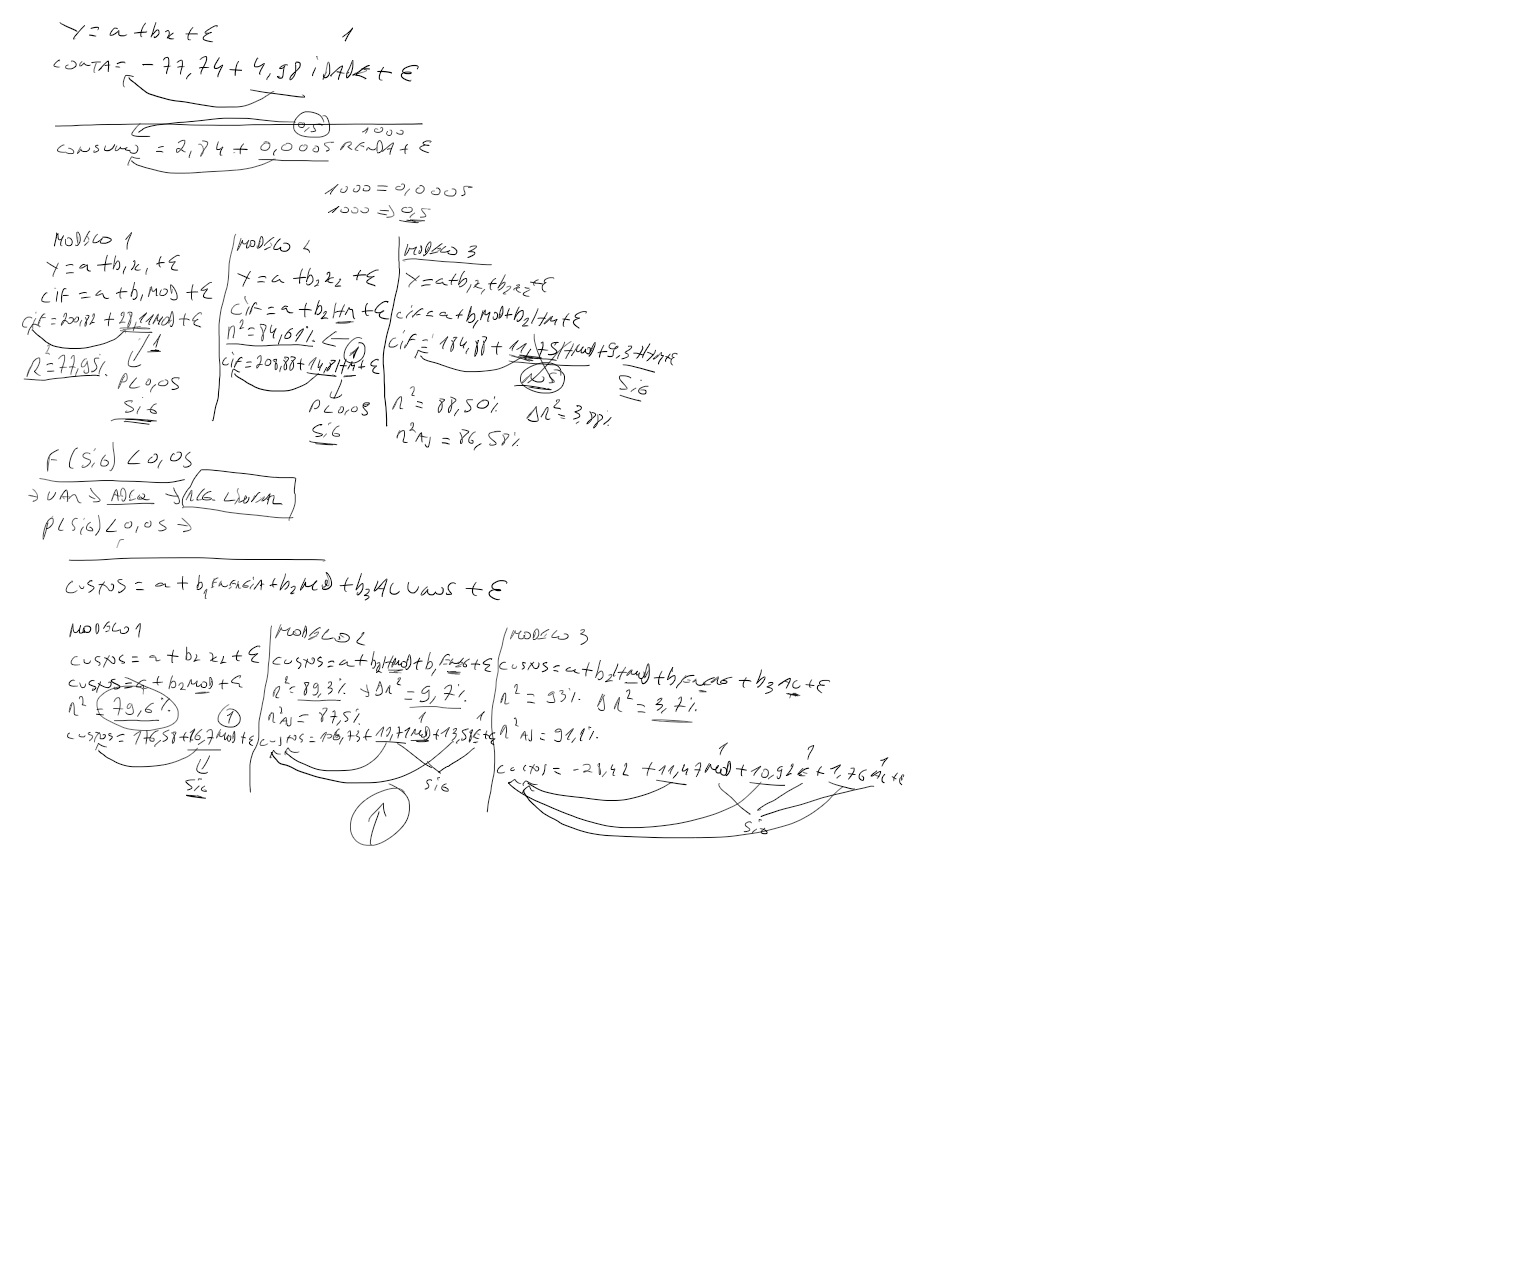 Y = a + bx + ε
1
CONTA = -77,74 + 4,98 IDADE + ε
0,5
1000
CONSUMO = 2,84 + 0,0005 RENDA + ε
1000 = 0,0005
1000 => 0,5
MODELO 1
Y = a + b1x1 + ε
CIF = a + b1MOD + ε
CIF = 200,82 + MOD + ε
1
R² = 77,95%
P<0,05
SIG
MODELO 2
Y = a + b2x2 + ε
CIF = a + b2HM + ε
R² = 84,61% ←
1
CIF = 208,88 + 14,8HM + ε
P<0,05
SIG
MODELO 3
Y = a + b1x1 + b2x2 + ε
CIF = a + b1MOD + b2HM + ε
CIF = 184,88 + HMOD + 9,3 HM + ε
SIG
R² = 88,50%
ΔR² = 3,88%
R²AJ = 86,58%
F(SIG) < 0,05
→ VAR → → REG LINEAR
P(SIG) < 0,05 →
CUSTOS = a + b1ENERGIA + b2MOD + b3ACUANS + ε
MODELO 1
CUSTOS = a + b2 x2 + ε
CUSTOS = a + b2MOD + ε
R² = 79,6%
1
CUSTOS = 176,58 + 16,7MOD + ε
SIG
MODELO 2
CUSTOS = a + b2HMOD + b1ENEG + ε
R² = 89,3% → ΔR² = 9,7%
R²AJ = 87,5%
1 1
CUSTOS = 106,73 + MOD + 13,58E + ε
SIG
↑
MODELO 3
CUSTOS = a + b2HMOD + b1ENERG + b3 AC + ε
R² = 93% ΔR² = 3,7%
R²AJ = 91,1%
1 1 1
CUSTOS = -28,42 + 11,47MOD + 10,92E + 1,76AC + ε
SIG